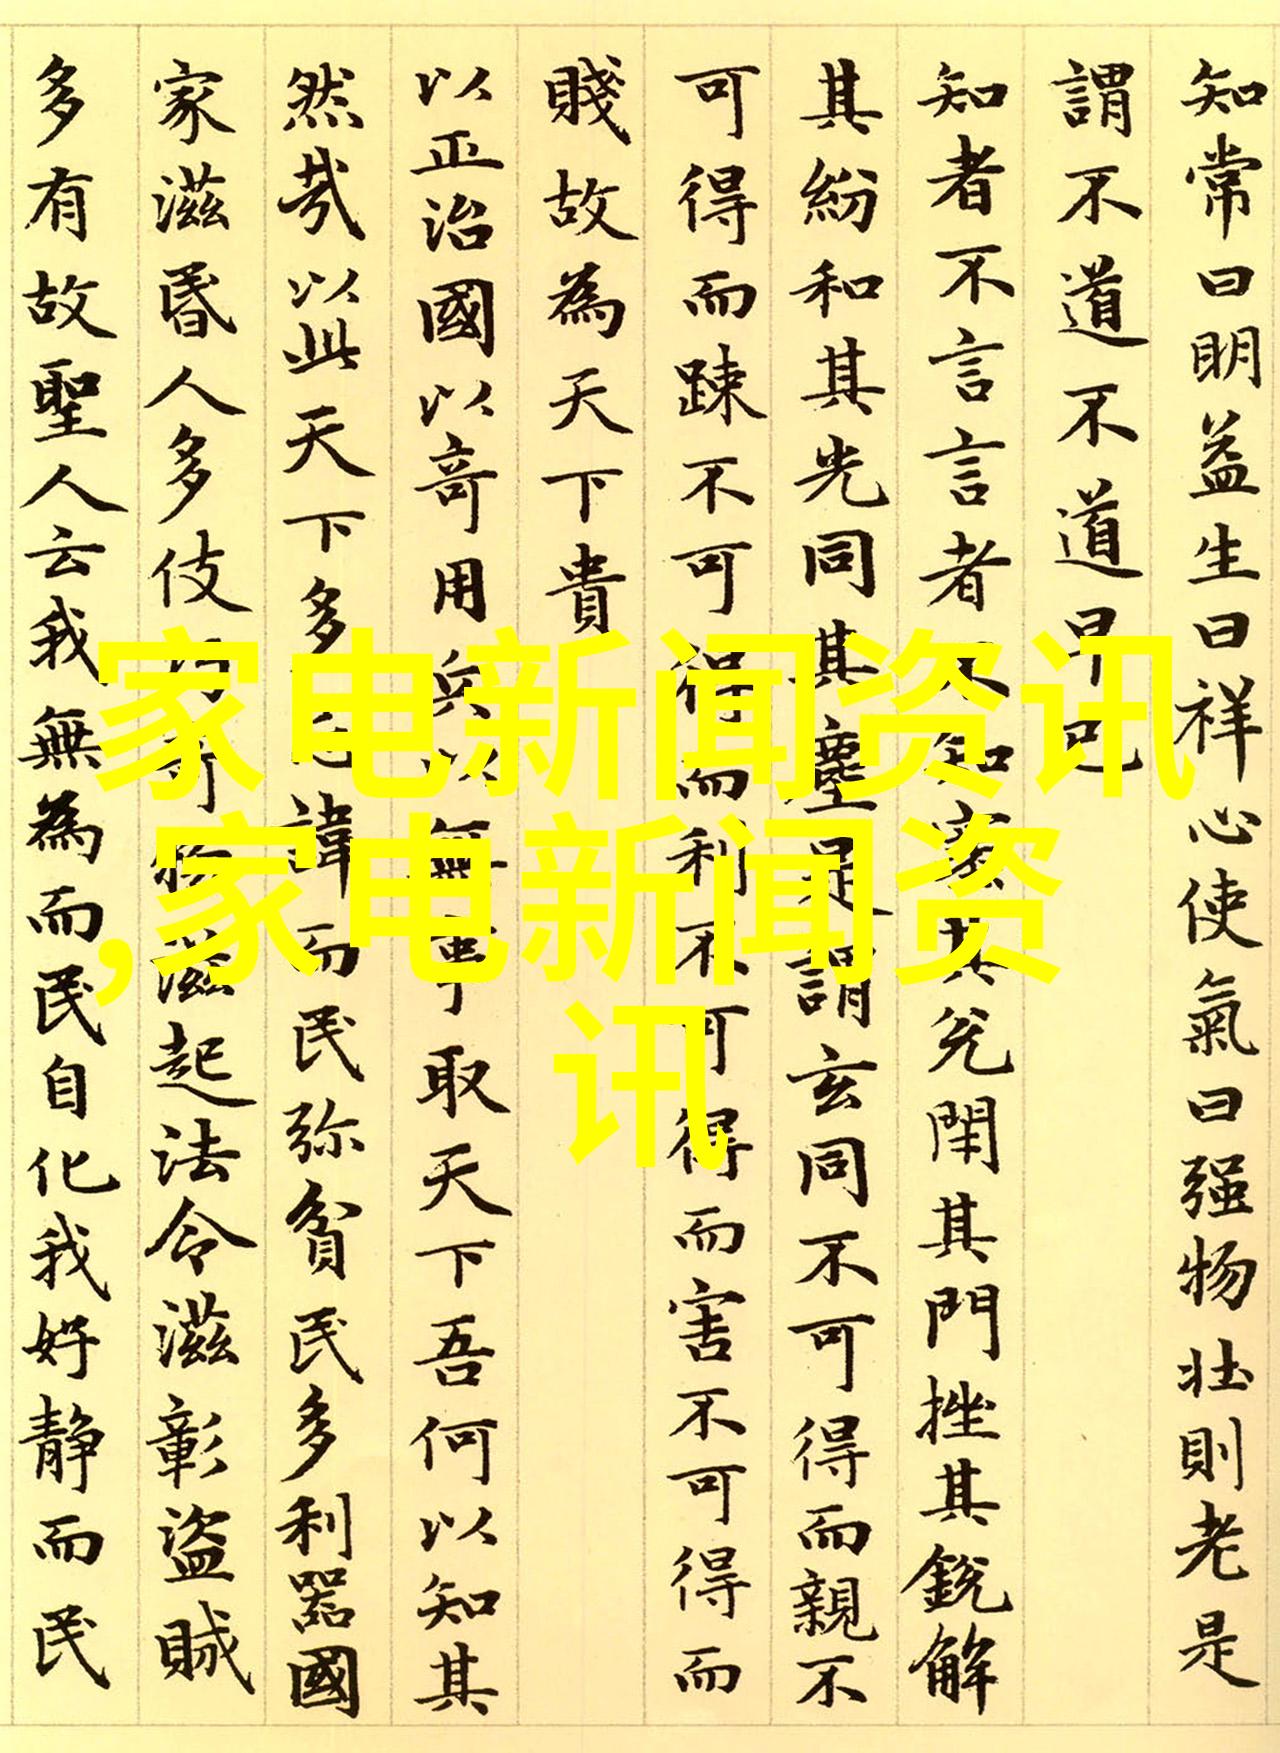 知常曰明益生曰祥心使氣曰强物壯則老是
謂不道不道早已
知者不言言者不知塞其兑閉其門挫其銳解
其紛和其光同其塵是謂玄同不可得而親不
可得而踈不可得而利不可得而害不可得而
賤故為天下貴
以正治國以奇用兵以無事取天下吾何以知其
然哉以此天下多忌諱而民弥貧民多利器國
家滋昬人多伎巧奇物滋起法令滋彰盗賊
多有故聖人云我無為而民自化我好静而民
家电新闻资讯
,家电新闻资
讯